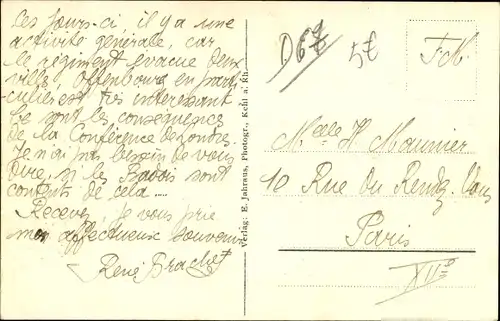 Ces jours-ci, il y a une
activité générale, car
le régiment évacue deux
villes, Offenbourg en parti
culier est très intéressant
Ce sont les conséquences
de la Conférence de Londres.
Je n'ai pas besoin de vous
dire, si les Badois sont
contents de cela....
Recevez, je vous prie
mon affectueux souvenir
René Brachet
Verlag: E. Jahraus, Photogr., Kehl a. Rh.
D67
5€
F.M
Melle H Maunier
10 Rue du Rendez-Vous
Paris
XIIe